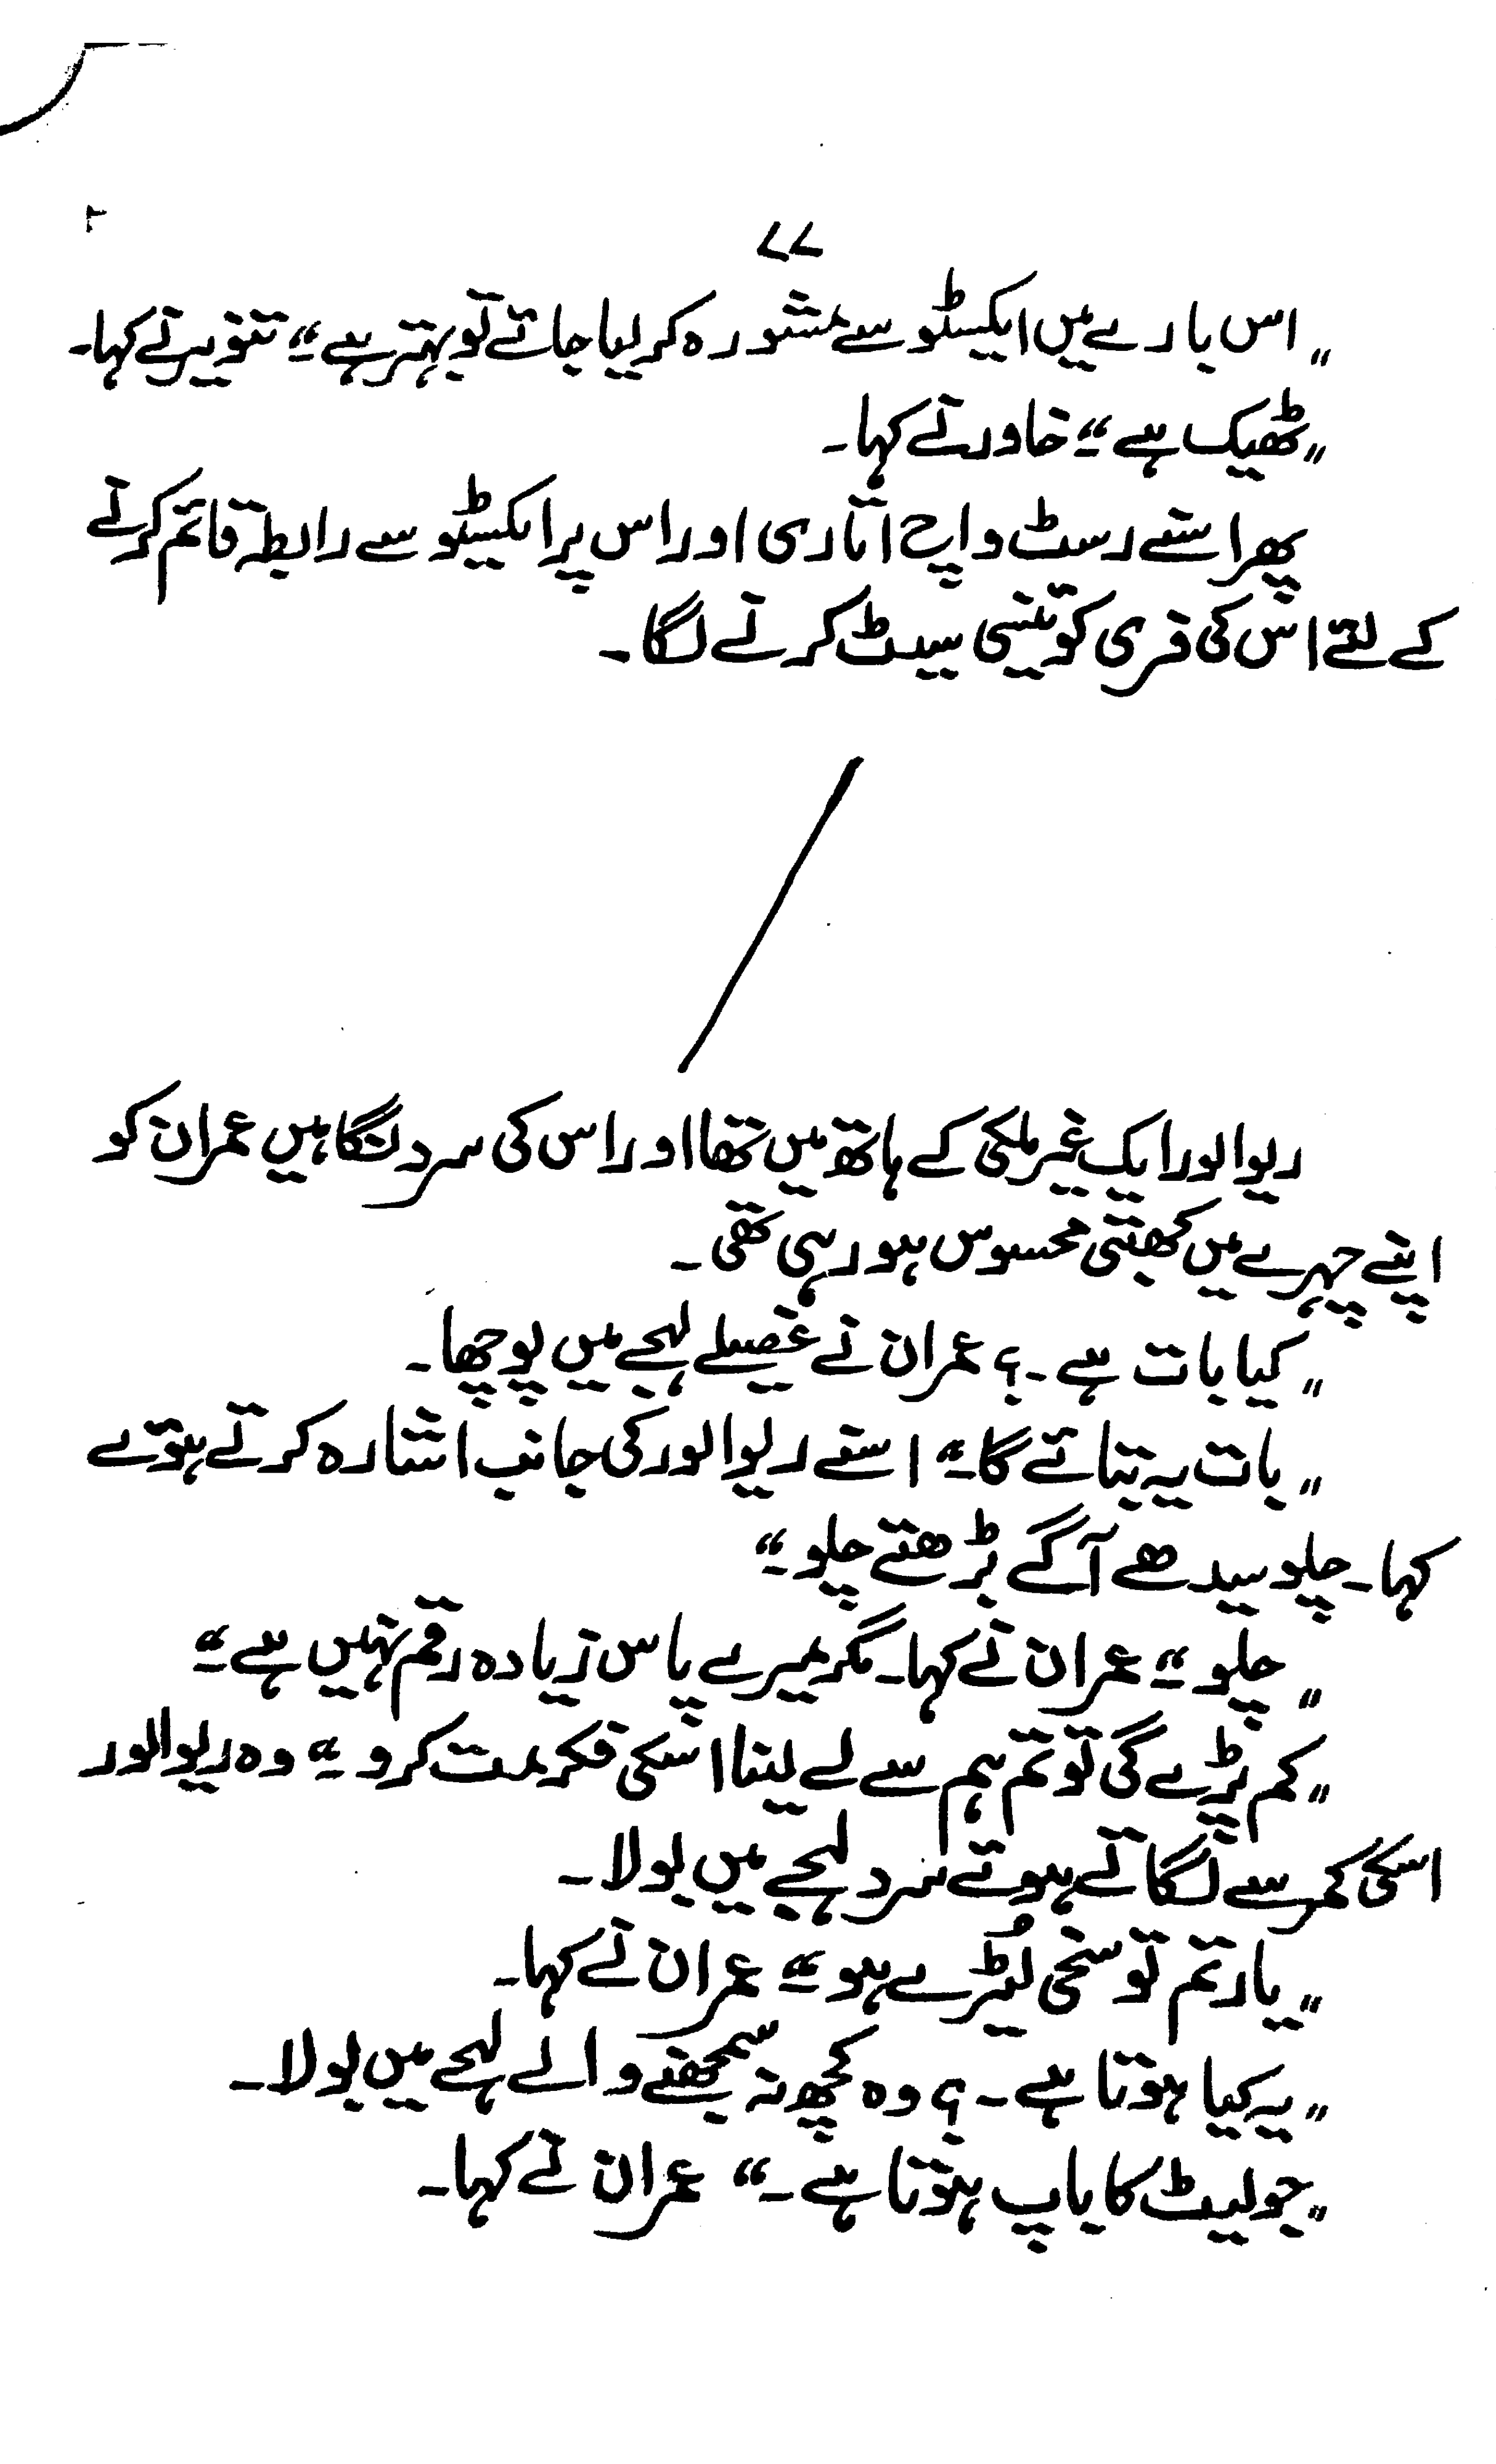 ۷۷
"اس بارے میں ایکسٹو سے مشورہ کر لیا جائے تو بہتر ہے۔" تنویر نے کہا۔
"ٹھیک ہے۔" خاور نے کہا۔
پھر اسنے رسٹ واچ اتاری اور اس پر ایکسٹو سے رابطہ قائم کرنے
کے لئے اس کی فری کوئنسی سیٹ کرنے لگا۔
ریوالور ایک غیر ملکی کے ہاتھ میں تھا اور اس کی سرد نگاہیں عمران کو
اپنے چہرے میں کھبتی محسوس ہو رہی تھی۔
"کیا بات ہے۔؟ عمران نے غصیلے لہجے میں پوچھا۔
"بات یہ بتائے گا۔" اسنے ریوالور کی جانب اشارہ کرتے ہوئے
کہا۔ چلو سیدھے آگے بڑھتے چلو۔"
"چلو۔" عمران نے کہا۔ مگر میرے پاس زیادہ رقم نہیں ہے۔"
"کم پڑے گی تو تم ہم سے لے لینا اسکی فکر مت کرو۔" وہ ریوالور
اسکی کمر سے لگاتے ہوئے سرد لہجے میں بولا۔
"یار تم تو سخی لُٹیرے ہو۔" عمران نے کہا۔
"یہ کیا ہوتا ہے۔؟ وہ کچھ نہ سمجھنے والے لہجے میں بولا۔
"جولیٹ کا باپ ہوتا ہے۔" عمران نے کہا۔